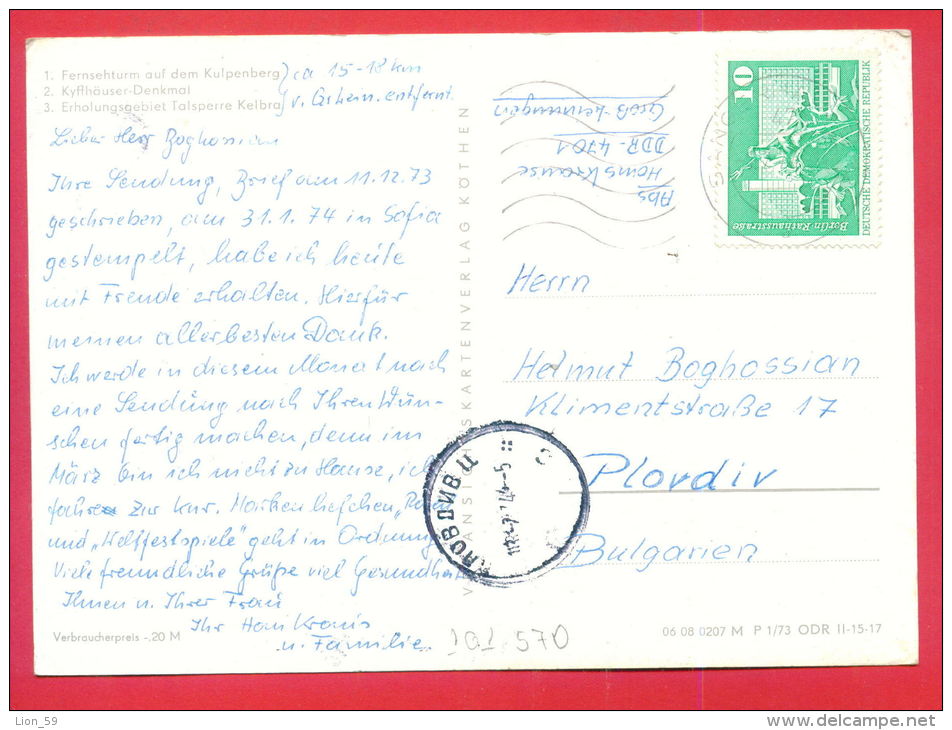 1. Fernsehturm auf dem Kulpenberg
2. Kyffhäuser-Denkmal
3. Erholungsgebiet Talsperre Kelbra
ca 15-18 km
v. entfernt.
Lieber Herr Boghossian
Ihre Sendung, Brief am 11.12.73
geschrieben, am 31.1.74 in Sofia
gestempelt, habe ich heute
mit Freude erhalten. Hierfür
meinen allerbesten Dank.
Ich werde in diesem Monat noch
eine Sendung nach Ihren Wün-
schen fertig machen, denn im
März bin ich nicht zu Hause, ich
fahre zur Kur. Markenheftchen
und "Weltfestspiele" geht in Ordnung
Viele freundliche Grüße viel Gesundheit
Ihnen u. Ihrer Frau
Ihr Hans Kraus
u. Familie.
Verbraucherpreis -.20 M
VERLAG KÖTHEN
Abs
Hans Krause
DDR-4701
Groß-Leinungen
10
Berlin-Rathausstraße
DEUTSCHE DEMOKRATISCHE REPUBLIK
Herrn
Helmut Boghossian
Klimentstraße 17
Plovdiv
Bulgarien
ПЛОВДИВ Ц
101 570
06 08 0207 M P 1/73 ODR II-15-17
Lion_59
delcampe.net